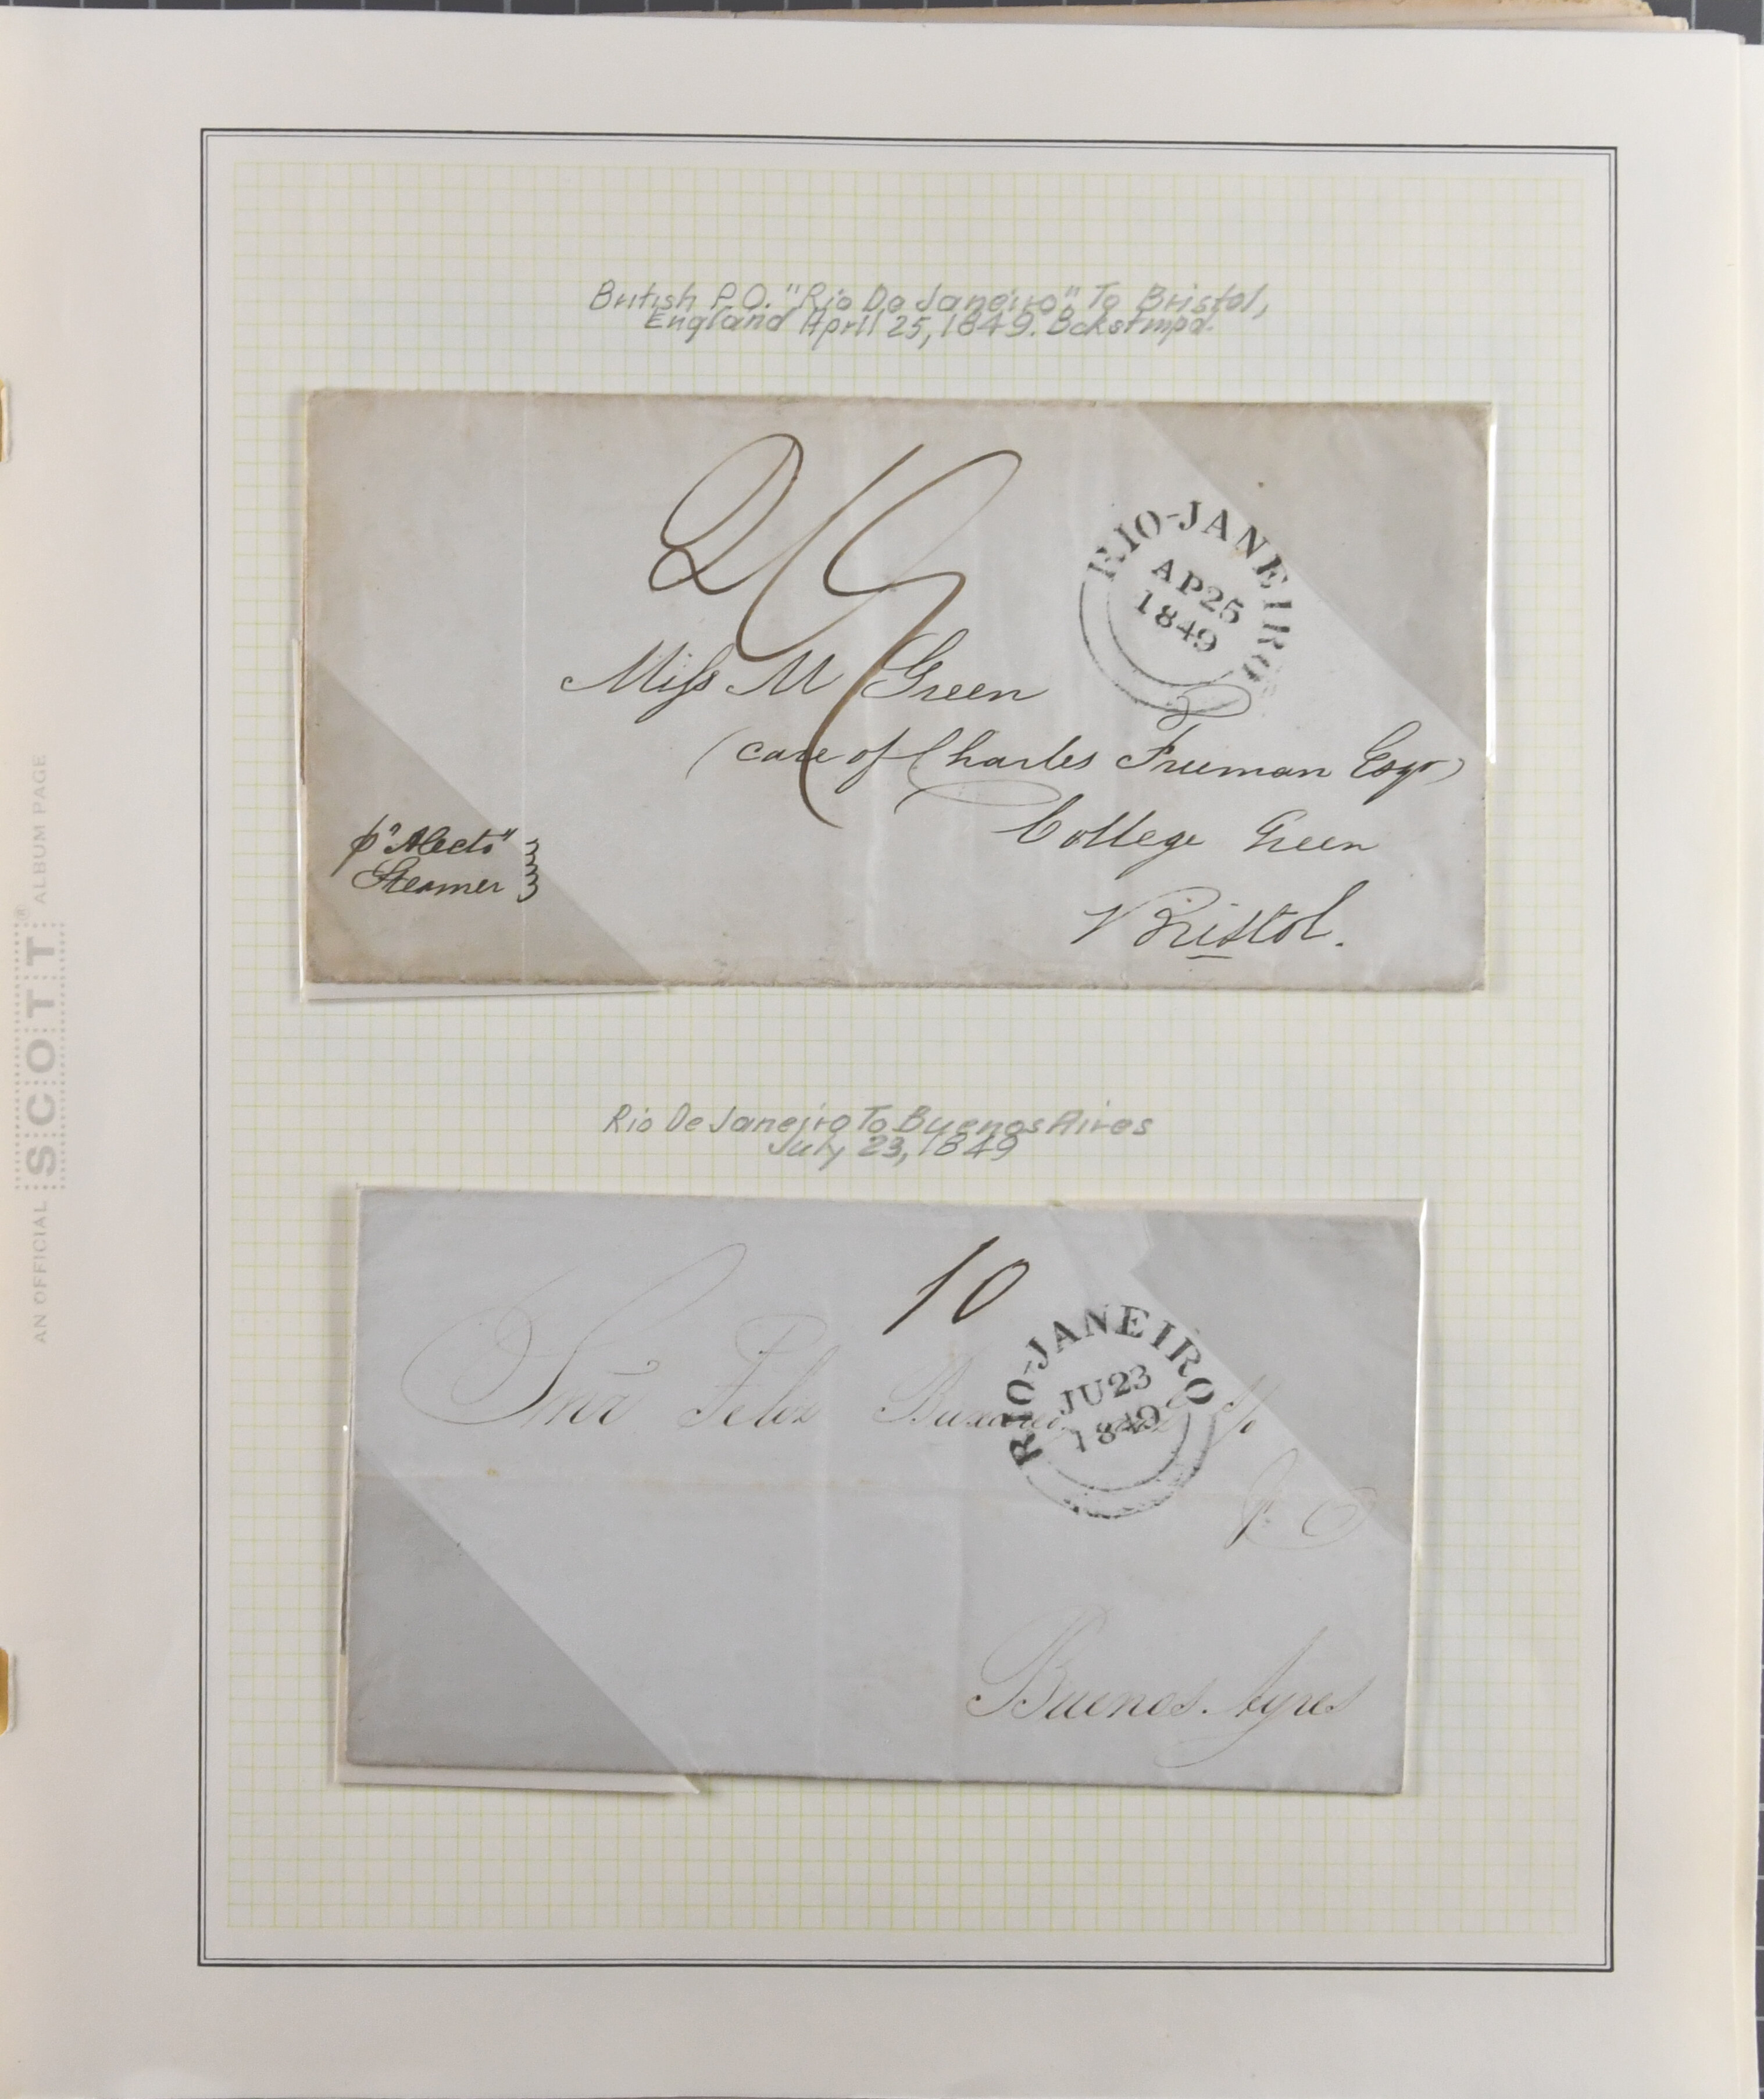 British P.O. "Rio De Janeiro" To Bristol,
England April 25, 1849. Bckstmpd.
2/9
RIO-JANEIRO
AP25
1849
Miss M Green
(care of Charles Freeman Esqr)
College Green
Bristol.
p "Alecto"
Steamer
Rio De Janeiro To Buenos Aires
July 23, 1849
10
RIO-JANEIRO
JU23
1849
Snr Felix
Buenos Ayres
AN OFFICIAL SCOTT® ALBUM PAGE